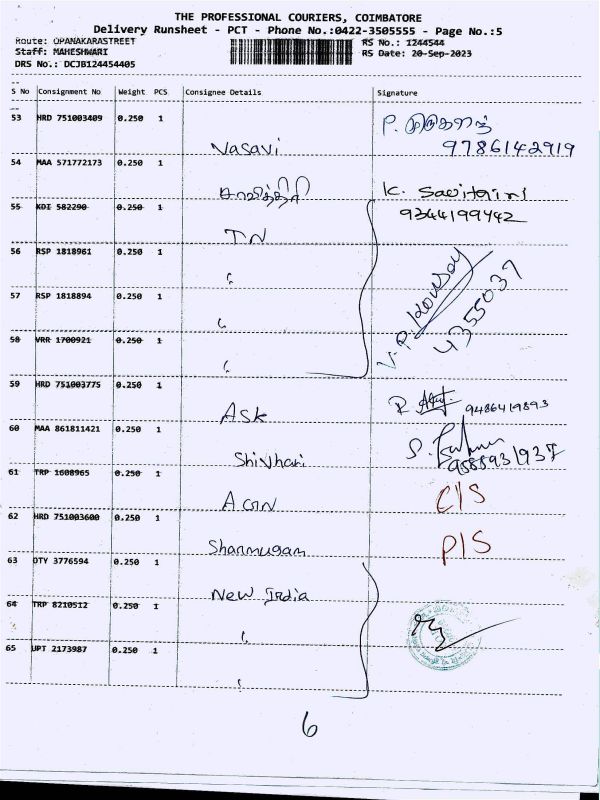 THE PROFESSIONAL COURIERS, COIMBATORE
Delivery Runsheet - PCT - Phone No.:0422-3505555 - Page No.:5
Route: OPANAKARASTREET RS No.: 1244544
Staff: MAHESHWARI RS Date: 20-Sep-2023
DRS No.: DCJB124454405
S No Consignment No Weight PCS Consignee Details Signature
53 HRD 751003409 0.250 1
Vasavi 9786142919
54 MAA 571772173 0.250 1
சாவித்திரி K. Savitri
55 KDI 582290 0.250 1 9344199742
TN
56 RSP 1818961 0.250 1
"
57 RSP 1818894 0.250 1 4355037
"
58 VRR 1700921 0.250 1
"
59 HRD 751003775 0.250 1
Ask 9486419893
60 MAA 861811421 0.250 1
Shivhari 9588931937
61 TRP 1608965 0.250 1
Acorn C/S
62 HRD 751003600 0.250 1
Shanmugam P/S
63 OTY 3776594 0.250 1
New India
64 TRP 8210512 0.250 1
"
65 UPT 2173987 0.250 1
"
6